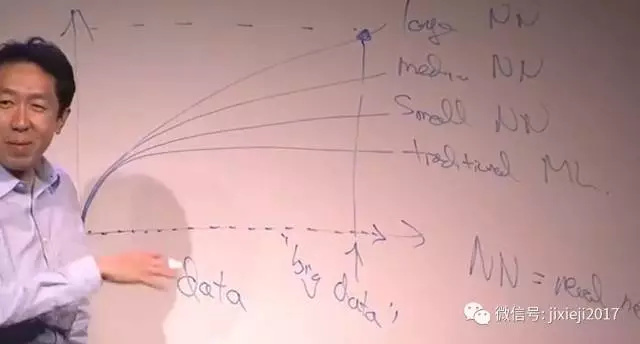 large NN
medium NN
Small NN
traditional ML
data
"big data"
NN =
微信号: jixieji2017